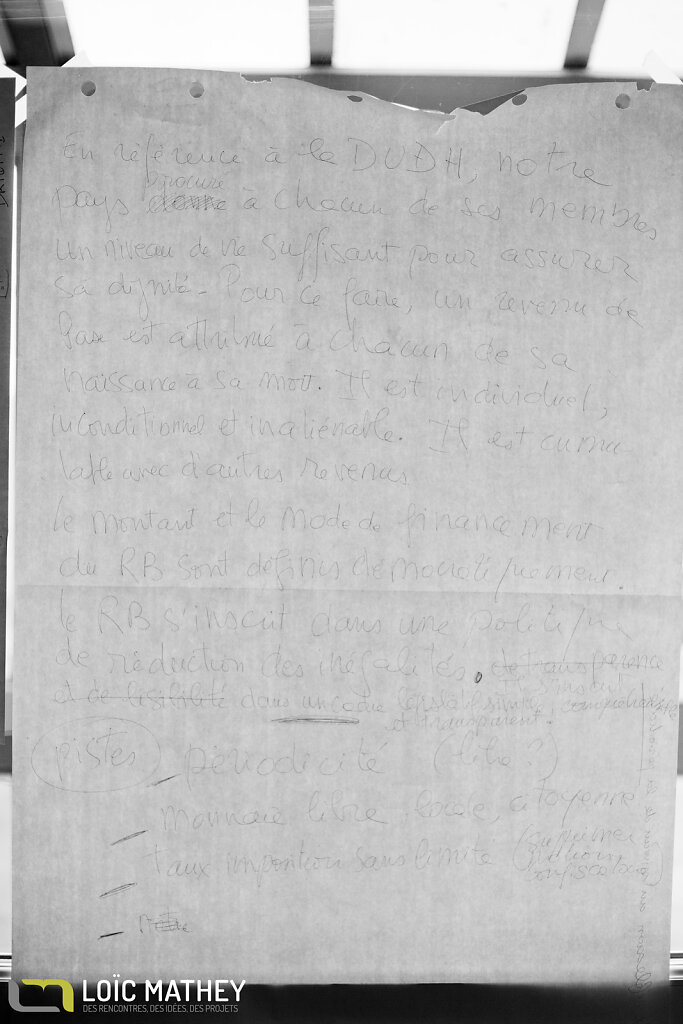 En référence à la DUDH, notre
procure
pays donne à chacun de ses membres
un niveau de vie suffisant pour assurer
sa dignité. Pour ce faire, un revenu de
base est attribué à chacun de sa
naissance à sa mort. Il est individuel,
inconditionnel et inaliénable. Il est cumu
lable avec d'autres revenus
Le montant et le mode de financement
du RB sont définis démocratiquement.
Le RB s'inscrit dans une politique
de réduction des inégalités. de transparence
s'inscrit
et de lisibilité dans un cadre législatif simple, compréhensible
et transparent.
pistes
périodicité (libre ?)
monnaie libre locale, citoyenne
taux imposition sans limite (supprimer
LOÏC MATHEY
DES RENCONTRES, DES IDÉES, DES PROJETS